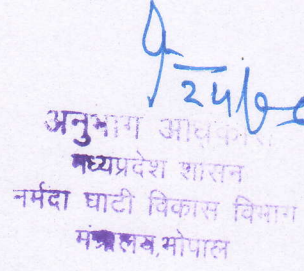 अनुभाग अधिकारी
मध्यप्रदेश शासन
नर्मदा घाटी विकास विभाग
मंत्रालय, भोपाल